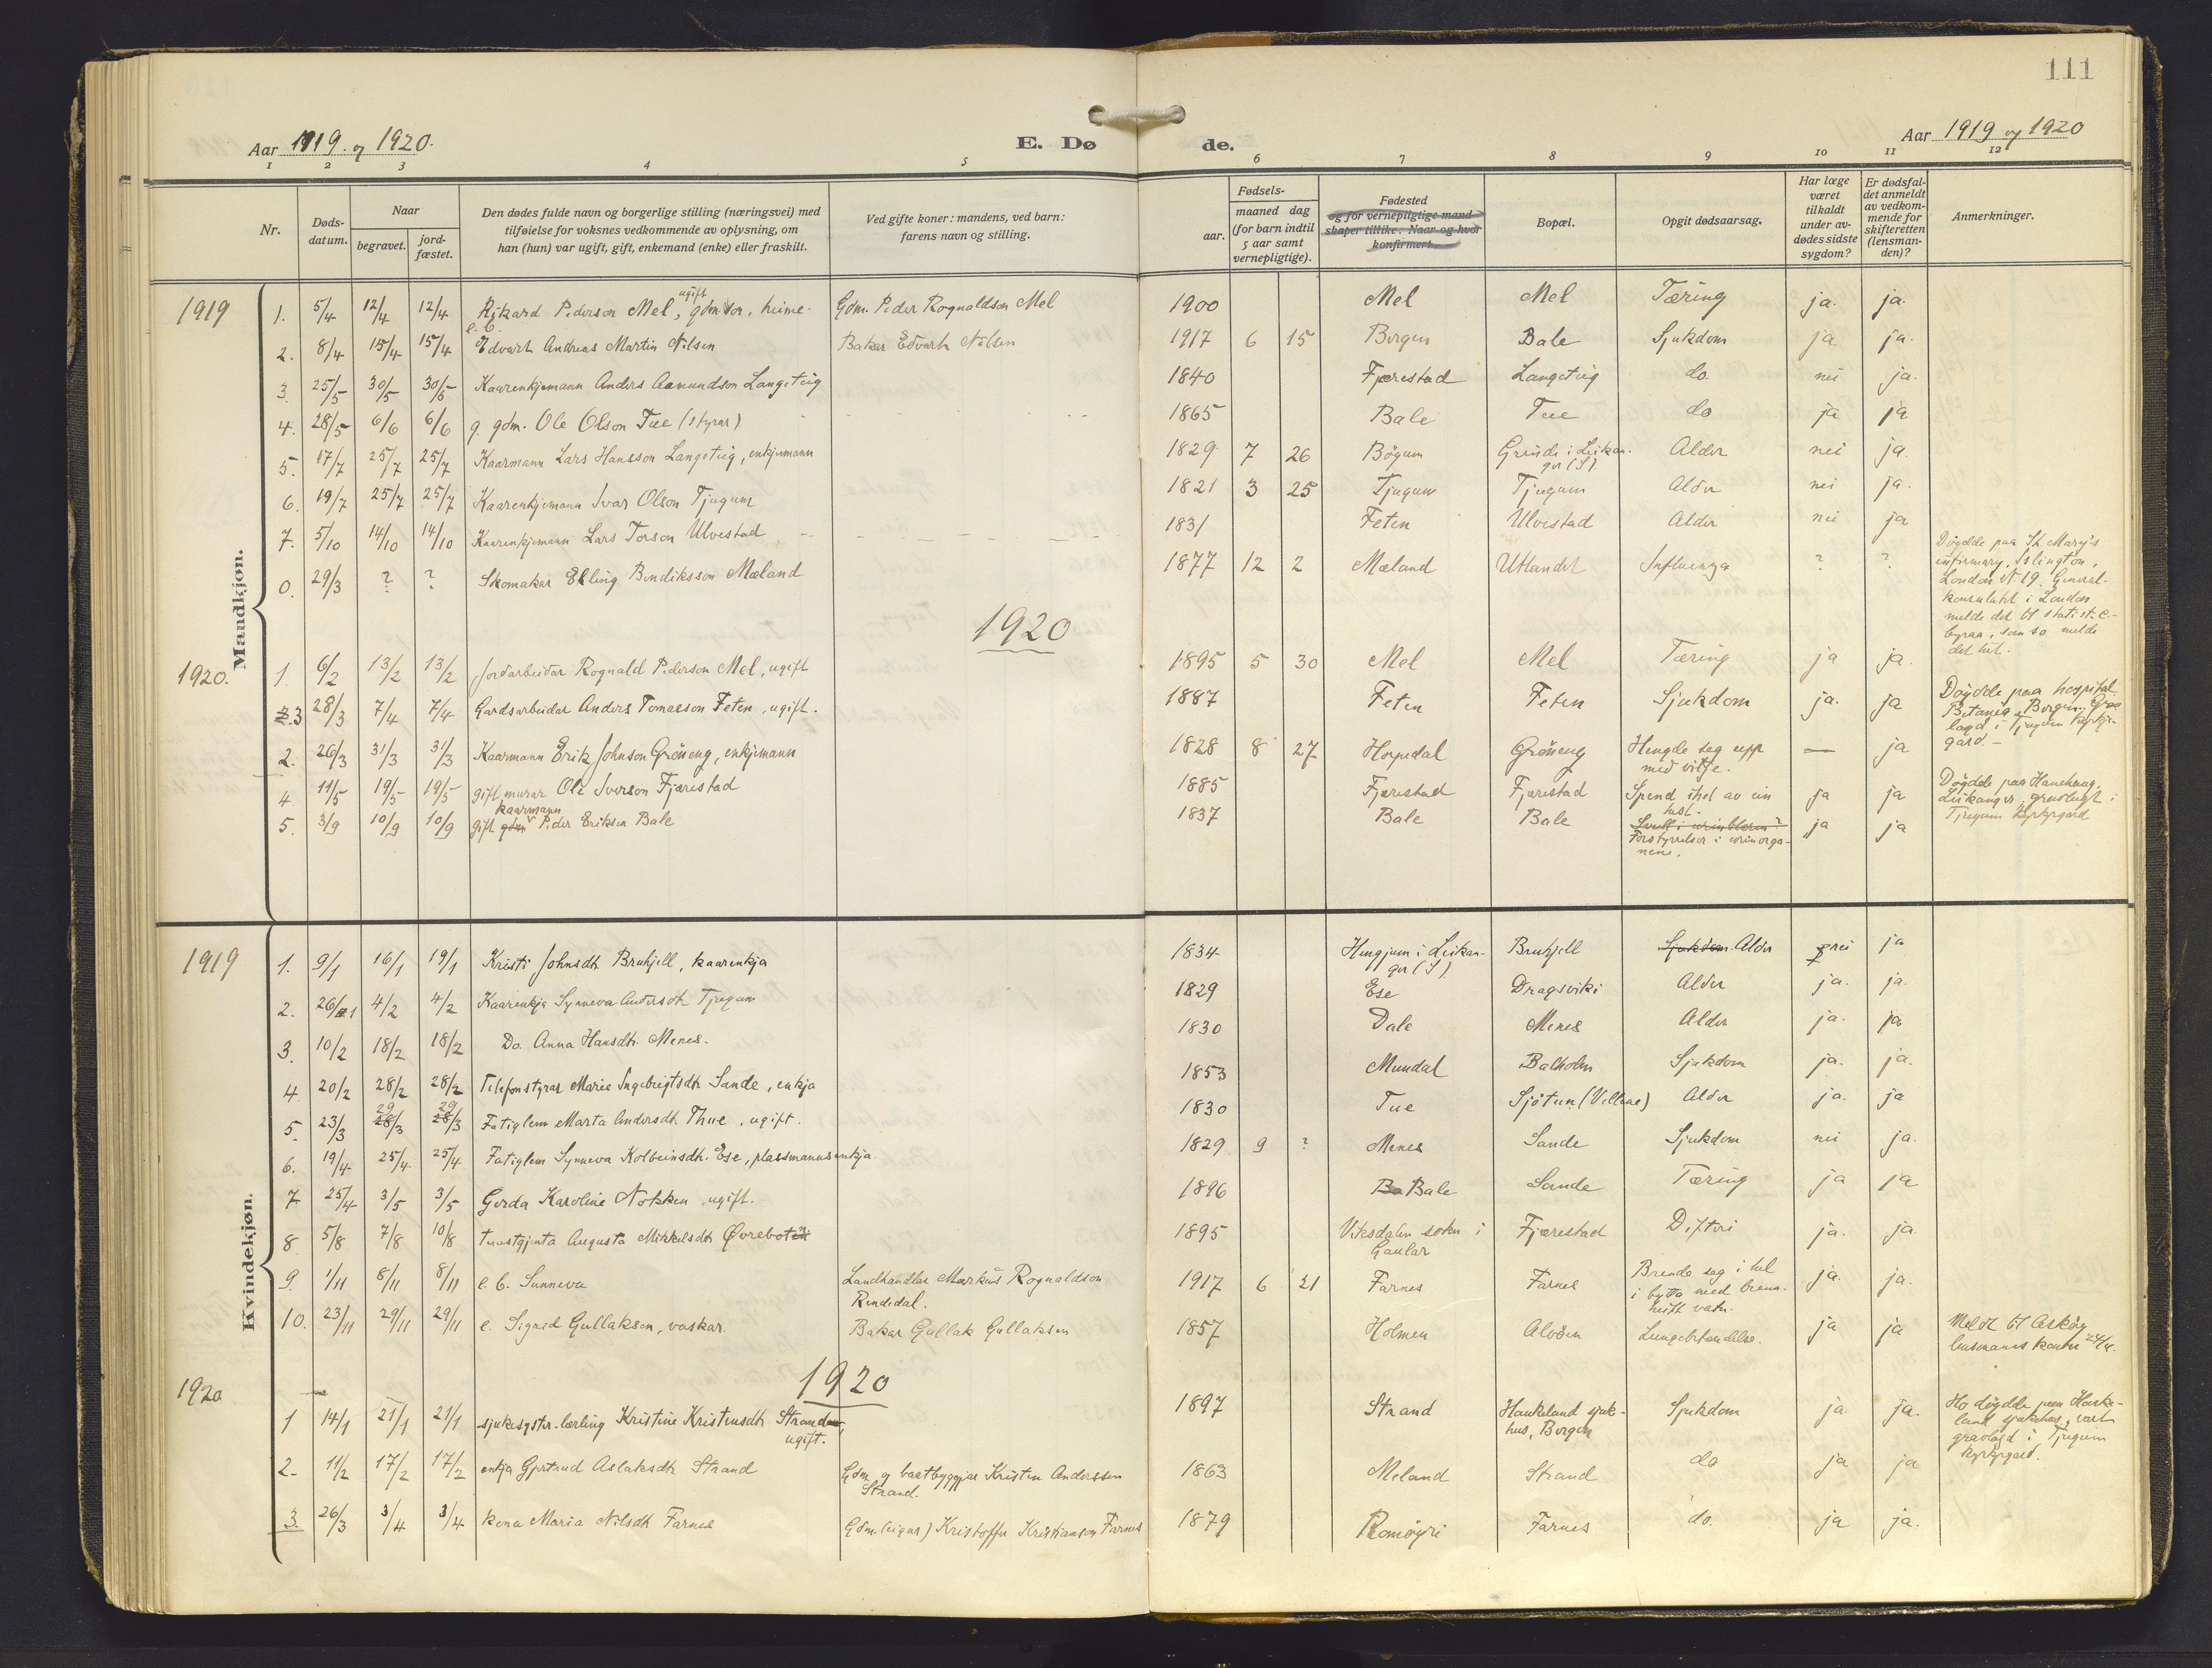 111
Aar 1919. og 1920.
E. Dø
de.
Aar 1919 og 1920
1 2 3 4 5 6 7 8 9 10 11 12
Nr.
Døds-
datum.
Naar
begravet.
jord-
fæstet.
Den dødes fulde navn og borgerlige stilling (næringsvei) med
tilføielse for voksnes vedkommende av oplysning, om
han (hun) var ugift, gift, enkemand (enke) eller fraskilt.
Ved gifte koner: mandens, ved barn:
farens navn og stilling.
Fødsels-
aar.
maaned dag
(for barn indtil
5 aar samt
vernepligtige).
Fødested
og for vernepligtige mand-
skaper tillike: Naar og hvor
konfirmert.
Bopæl.
Opgit dødsaarsag.
Har læge
været
tilkaldt
under av-
dødes sidste
sygdom?
Er dødsfal-
det anmeldt
av vedkom-
mende for
skifteretten
(lensman-
den)?
Anmerkninger.
Mandkjøn.
1919 1. 5/4 12/4 12/4 Rikard Pederson Mel, ugift gdm. son, heime- Gdm. Peder Rognaldson Mel 1900 Mel Mel Tæring ja. ja.
2. 8/4 15/4 15/4 e. b. Edvart Andreas Martin Nilsen Bakar Edvart Nilsen 1917 6 15 Bergen Bale Sjukdom ja ja.
3. 25/5 30/5 30/5 Kaarenkjemann Anders Aamundson Langeteig 1840 Fjærestad Langeteig do. nei ja.
4. 28/5 6/6 6/6 g. gdm. Ole Olson Tue (styrar) 1865 Bale Tue do ja ja
5. 17/7 25/7 25/7 Kaarmann Lars Hansson Langeteig, enkjemann 1829 7 26 Bøyum Grinde i Leikan-
ger (S) Alder nei ja.
6. 19/7 25/7 25/7 Kaarenkjemann Ivar Olson Tjugum 1821 3 25 Tjugum Tjugum Alder nei ja.
7. 5/10 14/10 14/10 Kaarenkjemann Lars Torson Ulvestad 1831 Feten Ulvestad Alder nei ja
0. 29/3 ? ? Skomakar Elling Bendiksson Mæland 1877 12 2 Mæland Utlandet Influenza ? ? Døydde paa St. Mary's
infirmary, Islington,
London N 19. General-
konsulatet i London
melde det til statist. c-
byraa, som so melde
det hit.
1920
1920. 1. 6/2 13/2 13/2 Jordarbeidar Rognald Pederson Mel, ugift 1895 5 30 Mel Mel Tæring ja ja.
2. 3 28/3 7/4 7/4 Gardsarbeidar Anders Tomasson Feten, ugift. 1887 Feten Feten Sjukdom ja. ja Døydde paa hospital
Betania, Bergen. Grav-
lagd i Tjugum kyrkje-
gard. –
2. 26/3 31/3 31/3 Kaarmann Erik Johnson Grøneng, enkjemann 1828 8 27 Hopedal Grøneng Hengde seg upp
med vilje. — ja
4 11/5 19/5 19/5 gift murar Ole Iverson Fjærestad 1885 Fjærestad Fjærestad Spend ihel av ein
hest. ja ja Døydde paa Hanehaug,
Leikanger, gravlagt i
Tjugum kyrkjegard
5. 3/9 10/9 10/9 gift gdm kaarmann Peder Erikson Bale 1837 Bale Bale Forstyrrelser i urinorga-
nene. ja ja
Kvindekjøn.
1919 1. 9/1 16/1 19/1 Kristi Johnsdtr Brukjell, kaarenkja 1834 Hengjum i Leikan-
ger (S) Brukjell Sjukdom Alder nei ja
2. 26/1 4/2 4/2 Kaarenkja Synneva Andersdtr Tjugum 1829 Ese Dragsviki Alder ja. ja.
3. 10/2 18/2 18/2 Do. Anna Hansdtr. Menes. 1830 Dale Menes Alder ja. ja
4 20/2 28/2 28/2 Telefonstyrar Marie Ingebrigtsdtr Sande, enkja 1853 Mundal Balholm Sjukdom ja. ja.
5. 23/3 29 28/3 29 28/3 Fatiglem Marta Andersdtr. Thue, ugift. 1830 Tue Sjøtun (Vellene) Alder ja. ja
6. 19/4 25/4 25/4 Fatiglem Synneva Kolbeinsdtr. Ese, plassmannsenkja. 1829 9 ? Menes Sande Sjukdom nei ja.
7 25/4 3/5 3/5 Gerda Karoline Nokken, ugift. 1896 Ba Bale Sande Tæring ja ja
8. 5/8 7/8 10/8 tenestgjenta Augusta Mikkelsdtr Øvrebotn 1895 Viksdalen sokn i
Gaular Fjærestad Difteri ja. ja
9. 1/11 8/11 8/11 e. b. Sunneva Landhandlar Markus Rognaldson
Rendedal. 1917 6 21 Farnes Farnes Brende seg i hel
i bytta med brenn-
heitt vatn. ja. ja.
10. 23/11 29/11 29/11 e. Sigrid Gullaksen, vaskar. Bakar Gullak Gullaksen 1857 Holmen Alvøen Lungebetændelse. ja ja Meldt til Askøy
lensmanns kontor 24/11.
1920
1920 1 14/1 21/1 21/1 sjukesyster-lærling Kristine Kristensdtr Strand,
ugift. 1897 Strand Haukeland sjuk-
hus, Bergen Sjukdom ja. ja. Ho døydde paa Hauke-
land sjukehus, vart
gravlagd i Tjugum
kyrkjegard.
2. 11/2 17/2 17/2 enkja Gjertrud Aslaksdtr Strand Gdm. og baatbyggjar Kristen Anderssen
Strand. 1863 Meland Strand do ja ja
3. 26/3 3/4 3/4 kona Maria Nilsdtr Farnes Gdm. (eigar) Kristoffer Kristianson Farnes 1879 Romøyri Farnes do. ja ja.